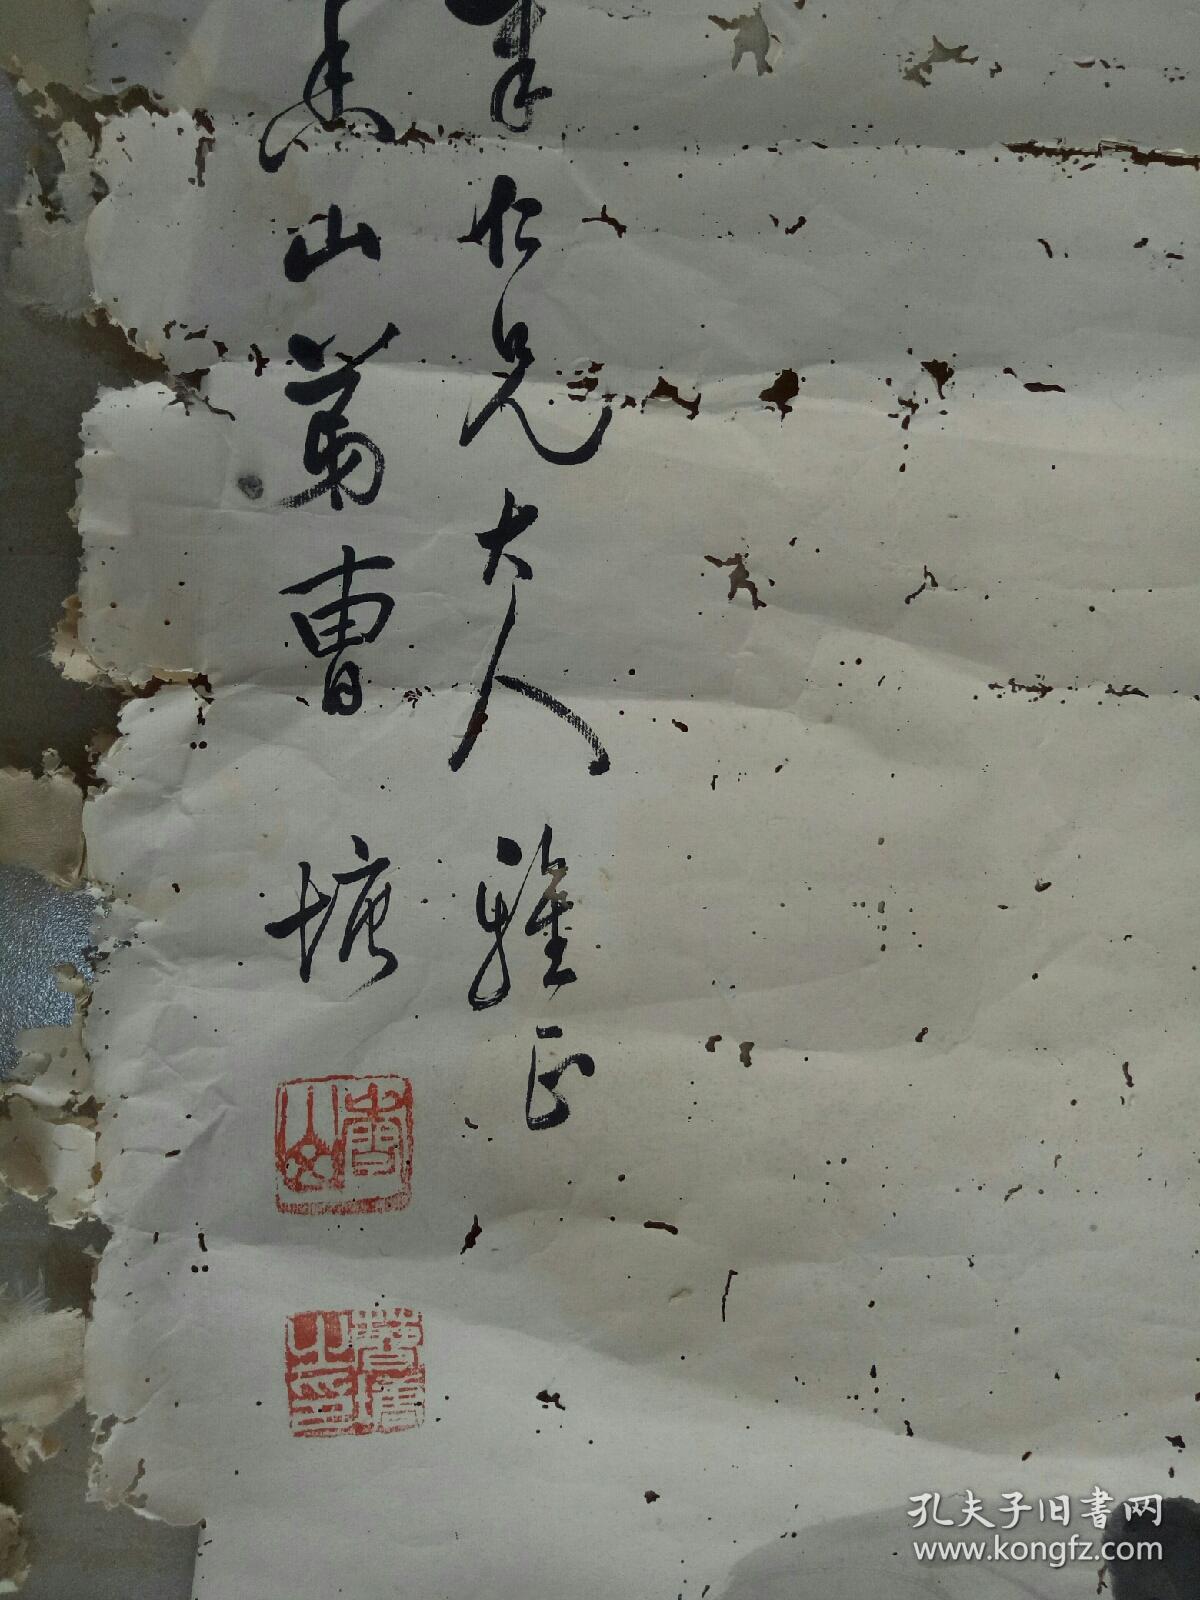 仁兄大人雅正
山弟曹塘
曹塘之印
孔夫子旧书网
www.kongfz.com